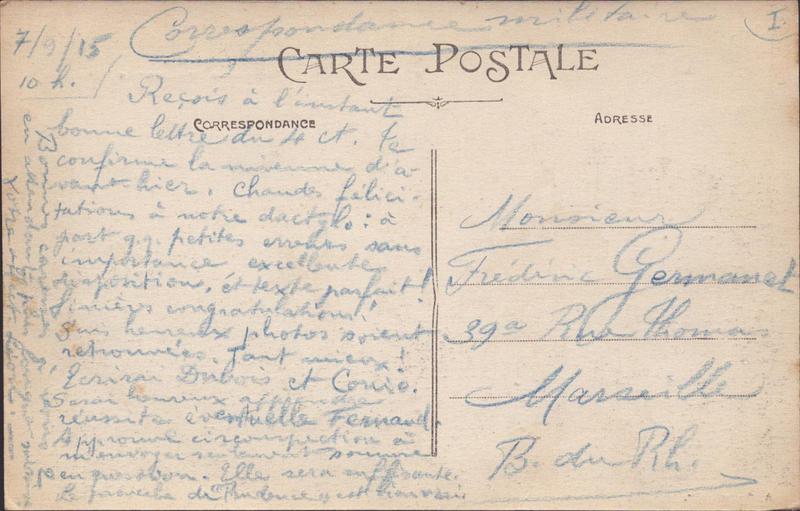 Correspondance militaire
I
7/9/15
10 h.
CARTE POSTALE
CORRESPONDANCE
ADRESSE
Reçois à l'instant
bonne lettre du 4 ct. Te
confirme la mienne d'a-
vant-hier. Chaudes félici-
tations à notre dactylo: à
part q.q. petites erreurs sans
importance excellente
disposition, et texte parfait!
congratulations!
Suis heureux photos soient
retrouvées. Tant mieux!
Ecrirai Dubois et
Serai heureux apprendre
réussite éventuelle Fernand.
Approuve circonspection à
m'envoyer seulement somme
en question. Elle sera suffisante.
Le proverbe de "Prudence" est
Bonnes caresses à
en attendant
Monsieur
Frédéric Germanet
39a Rue Thomas
Marseille
B. du Rh.